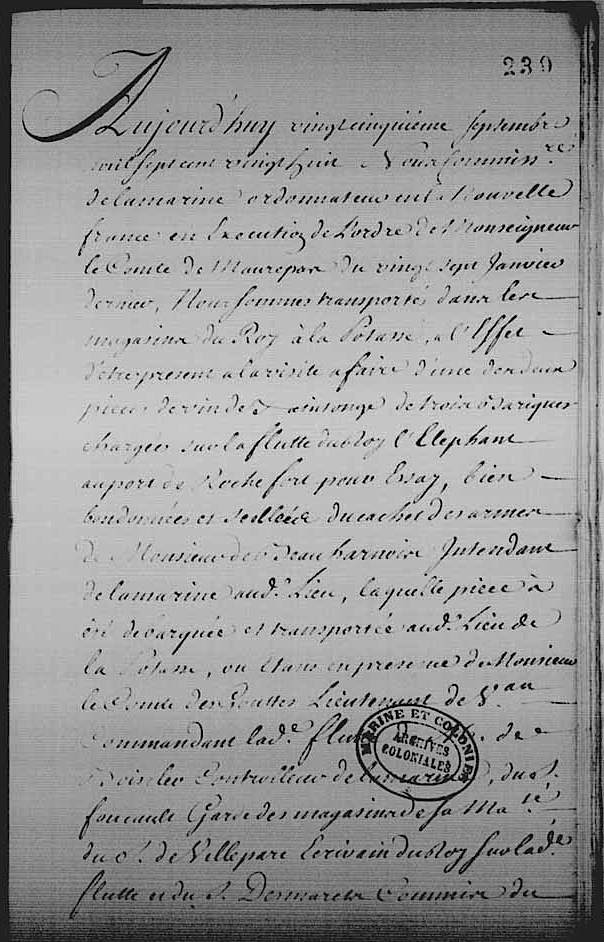 239
Aujourd'huy vingt cinquiéme septembre
mil sept cent vingt huit Nous Commiss.re
de la marine ordonnateur en la Nouvelle
france en Execution de L'ordre de Monseigneur
le Comte de Maurepas du vingt sept Janvier
dernier, Nous sommes transportés dans les
magasins du Roy à la Potasse, a l'Effet
d'etre present a la visite a faire d'une des deux
pieces de vin de Xaintonge de trois bariques
chargées sur la flutte du Roy l'Elephant
au port de Rochefort pour Essay, bien
bondonnées et scellées du cachet des armes
de Monsieur de Beauharnois Intendant
de la marine aud. Lieu, laquelle piece a
été debarquée et transportée aud. Lieu de
la Potasse, ou Etans en presence de Monsieur
le Comte des Gouttes Lieutenant de V.au
Commandant lad.e flutte, de
Boisclerc Controlleur de la marine, du S.
foucault Garde des magasins de Sa Ma.té
du S. de Villepare Ecrivain du Roy sur lad.e
flutte et du S. Desmarets Commise du
MARINE ET COLONIES
ARCHIVES
COLONIALES